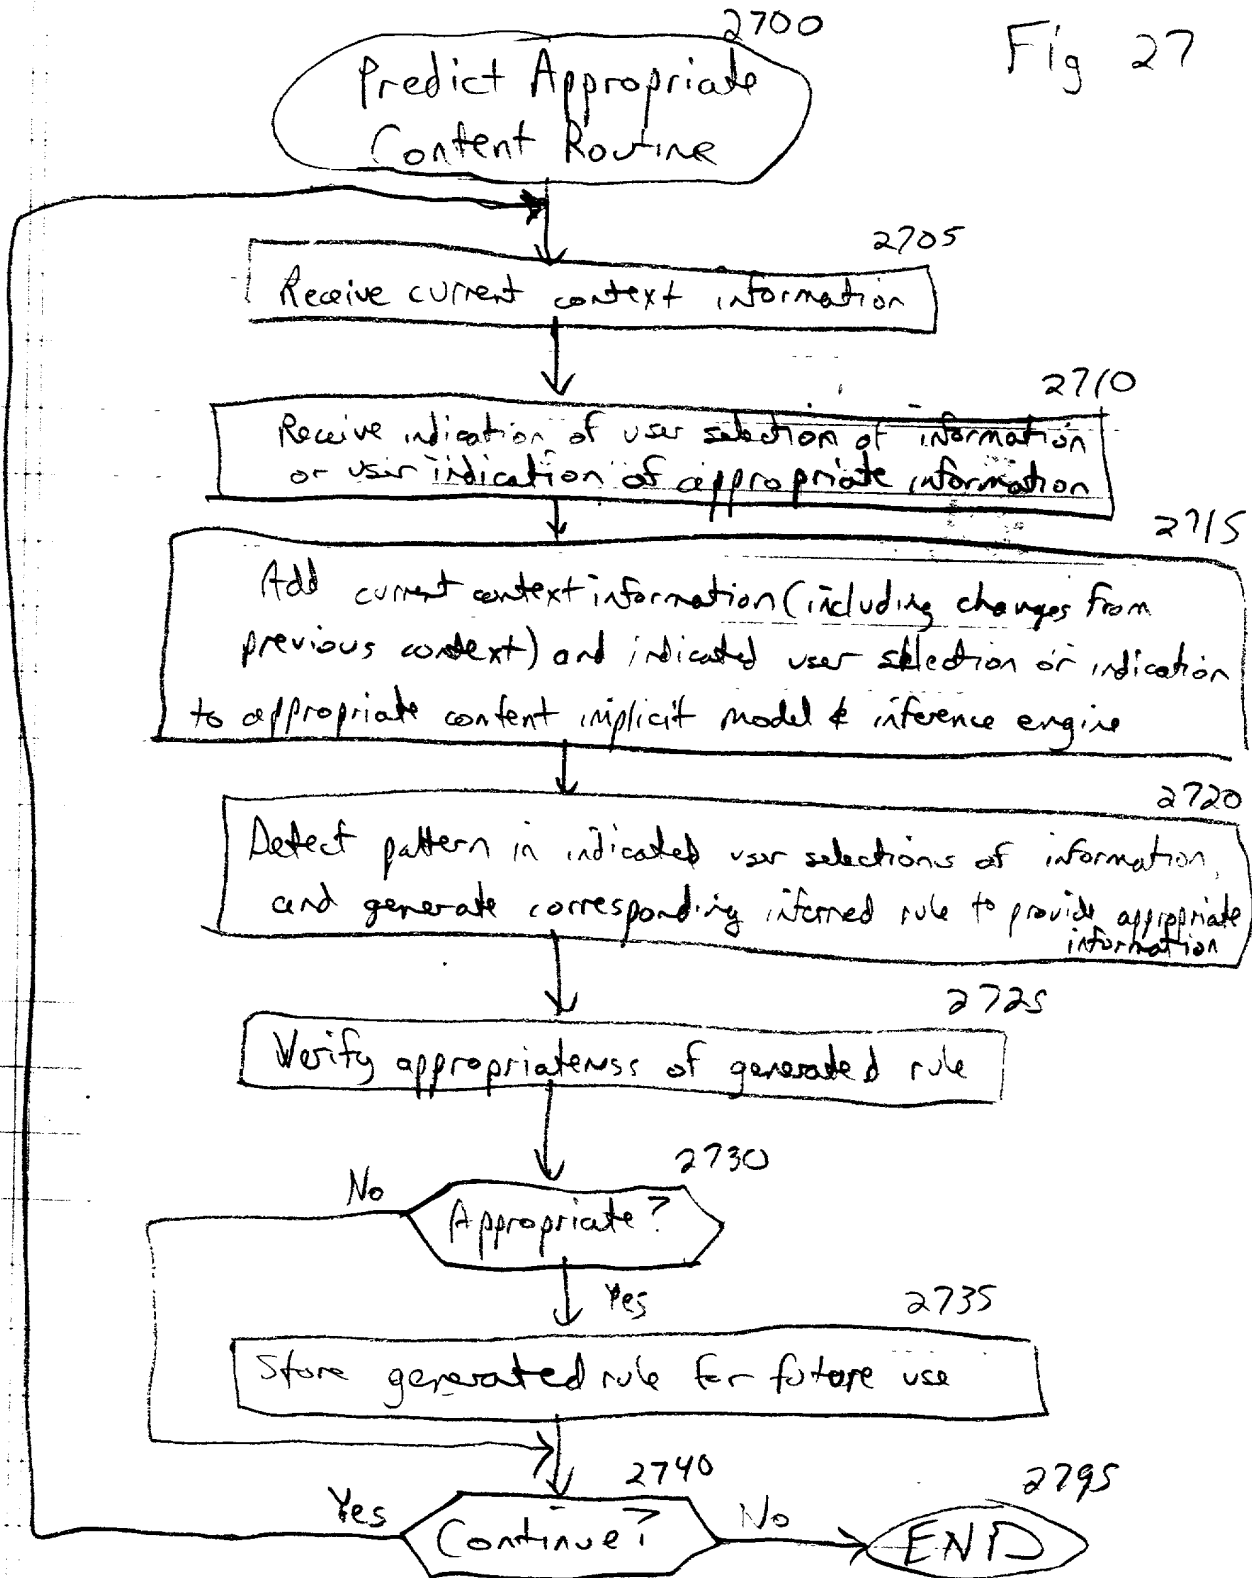 2700
Fig 27
Predict Appropriate
Content Routine
2705
Receive current context information
2710
Receive indication of user selection of information
or user indication of appropriate information
2715
Add current context information (including changes from
previous context) and indicated user selection or indication
to appropriate content implicit model & inference engine
2720
Detect pattern in indicated user selections of information,
and generate corresponding inferred rule to provide appropriate
information
2725
Verify appropriateness of generated rule
2730
No
Appropriate?
Yes
2735
Store generated rule for future use
2740
2795
Yes
Continue?
No
END